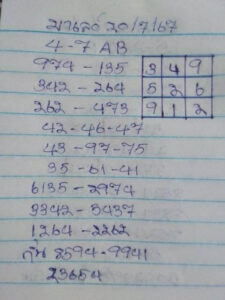 มาเลย์ 20/7/67
4-7 AB
974-135
3 4 9
342-264
5 2 6
262-473
9 1 2
42-46-47
43-97-75
35-61-41
6135-2974
3342-3437
1264-2262
กัน 8594-9941
23654